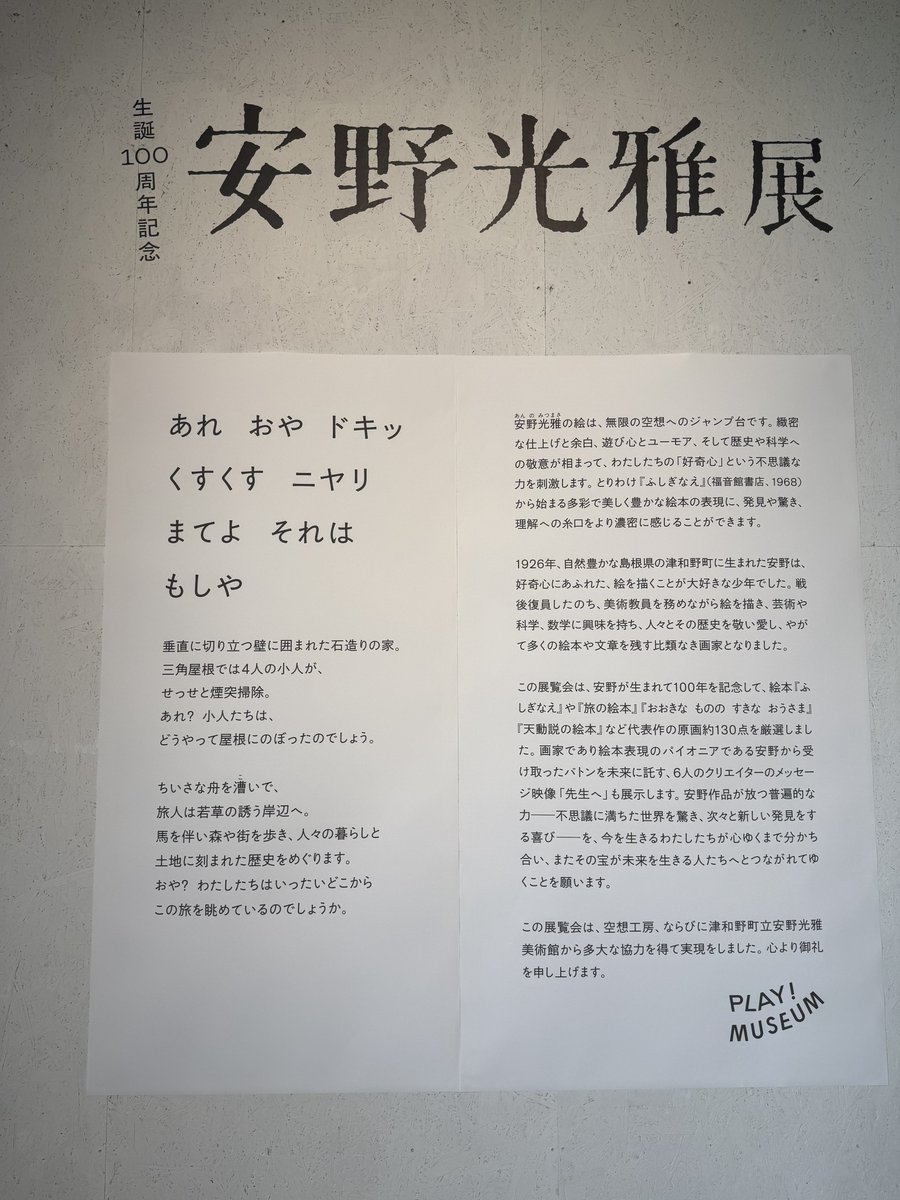 生誕100周年記念
安野光雅展
あれ　おや　ドキッ
くすくす　ニヤリ
まてよ　それは
もしや
垂直に切り立つ壁に囲まれた石造りの家。
三角屋根では4人の小人が、
せっせと煙突掃除。
あれ？ 小人たちは、
どうやって屋根にのぼったのでしょう。
こ
ちいさな舟を漕いで、
旅人は若草の誘う岸辺へ。
馬を伴い森や街を歩き、人々の暮らしと
土地に刻まれた歴史をめぐります。
おや？ わたしたちはいったいどこから
この旅を眺めているのでしょうか。
あんの みつまさ
安野光雅の絵は、無限の空想へのジャンプ台です。緻密
な仕上げと余白、遊び心とユーモア、そして歴史や科学へ
の敬意が相まって、わたしたちの「好奇心」という不思議な
力を刺激します。とりわけ『ふしぎなえ』（福音館書店、1968）
から始まる多彩で美しく豊かな絵本の表現に、発見や驚き、
理解への糸口をより濃密に感じることができます。
1926年、自然豊かな島根県の津和野町に生まれた安野は、
好奇心にあふれた、絵を描くことが大好きな少年でした。戦
後復員したのち、美術教員を務めながら絵を描き、芸術や
科学、数学に興味を持ち、人々とその歴史を敬い愛し、やが
て多くの絵本や文章を残す比類なき画家となりました。
この展覧会は、安野が生まれて100年を記念して、絵本『ふ
しぎなえ』や『旅の絵本』『おおきな ものの すきな おうさま』
『天動説の絵本』など代表作の原画約130点を厳選しまし
た。画家であり絵本表現のパイオニアである安野から受
け取ったバトンを未来に託す、6人のクリエイターのメッセー
ジ映像「先生へ」も展示します。安野作品が放つ普遍的な
力――不思議に満ちた世界を驚き、次々と新しい発見をす
る喜び――を、今を生きるわたしたちが心ゆくまで分かち
合い、またその宝が未来を生きる人たちへとつながれてゆ
くことを願います。
この展覧会は、空想工房、ならびに津和野町立安野光雅
美術館から多大な協力を得て実現をしました。心より御礼
を申し上げます。
PLAY!
MUSEUM